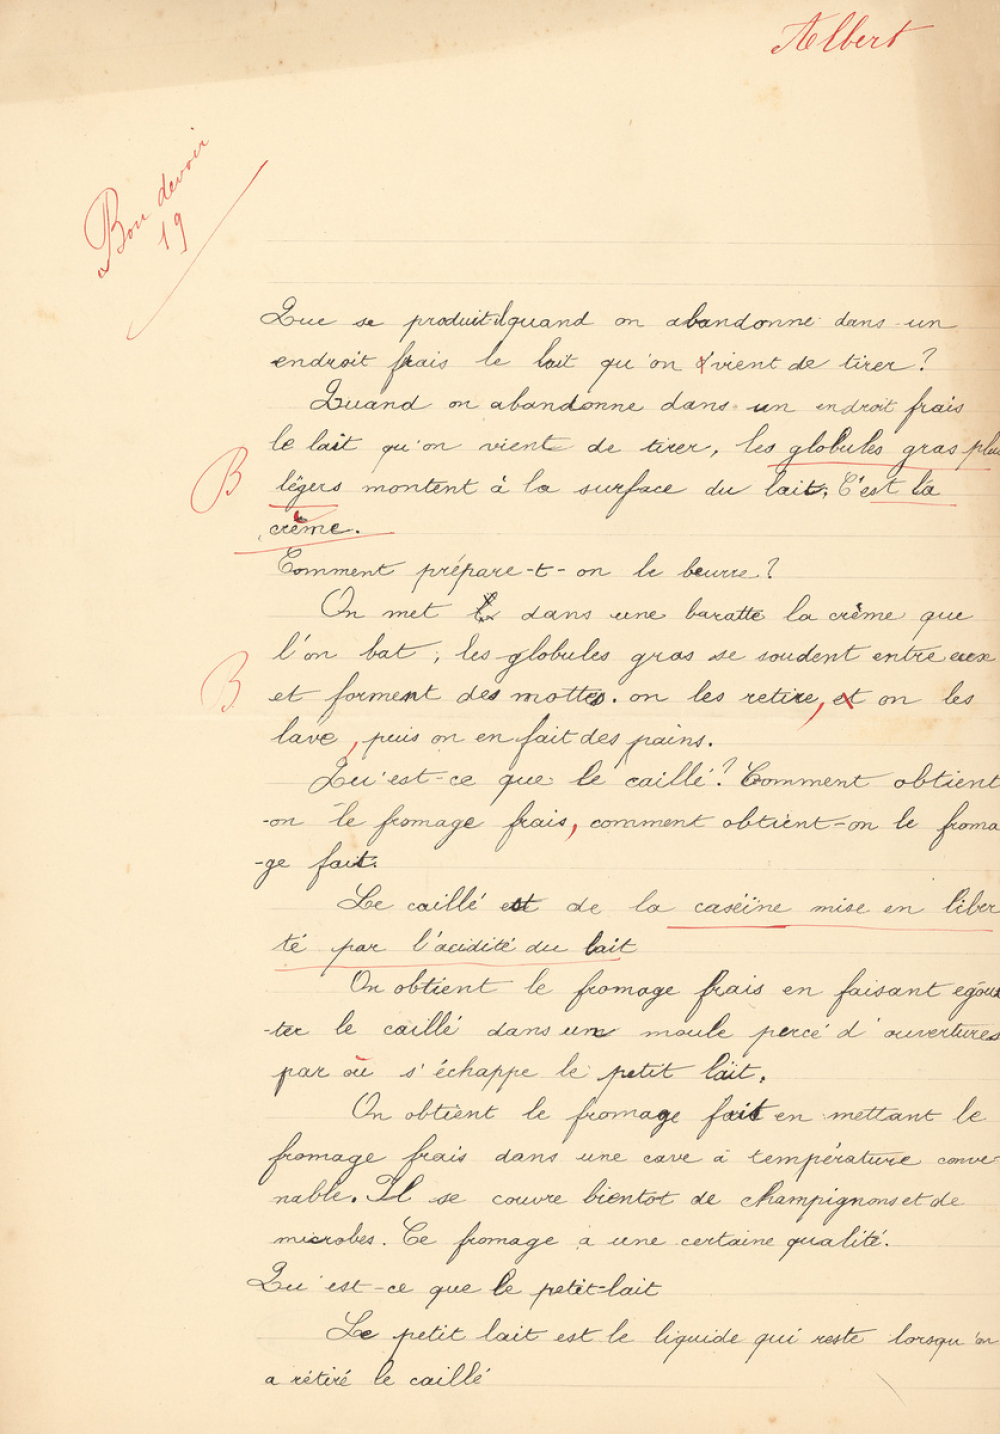 Albert
Bon devoir
19
Que se produit-il quand on abandonne dans un
endroit frais le lait qu'on vient de tirer ?
Quand on abandonne dans un endroit frais
le lait qu'on vient de tirer, les globules gras plus
B
légers montent à la surface du lait. C'est la
crème.
Comment prépare-t-on le beurre ?
On met dans une baratte la crème que
l'on bat ; les globules gras se soudent entre eux
B
et forment des mottes. on les retire, et on les
lave, puis on en fait des pains.
Qu'est-ce que le caillé ? Comment obtient
-on le fromage frais, comment obtient-on le froma
-ge fait.
Le caillé est de la caséine mise en liber
té par l'acidité du lait
On obtient le fromage frais en faisant egout
-ter le caillé dans une moule percé d'ouvertures
par où s'échappe le petit lait.
On obtient le fromage fait en mettant le
fromage frais dans une cave à température conve-
nable. Il se couvre bientot de champignons et de
microbes. Ce fromage a une certaine qualité.
Qu'est-ce que le petit-lait
Le petit lait est le liquide qui reste lorsqu'on
a rétiré le caillé